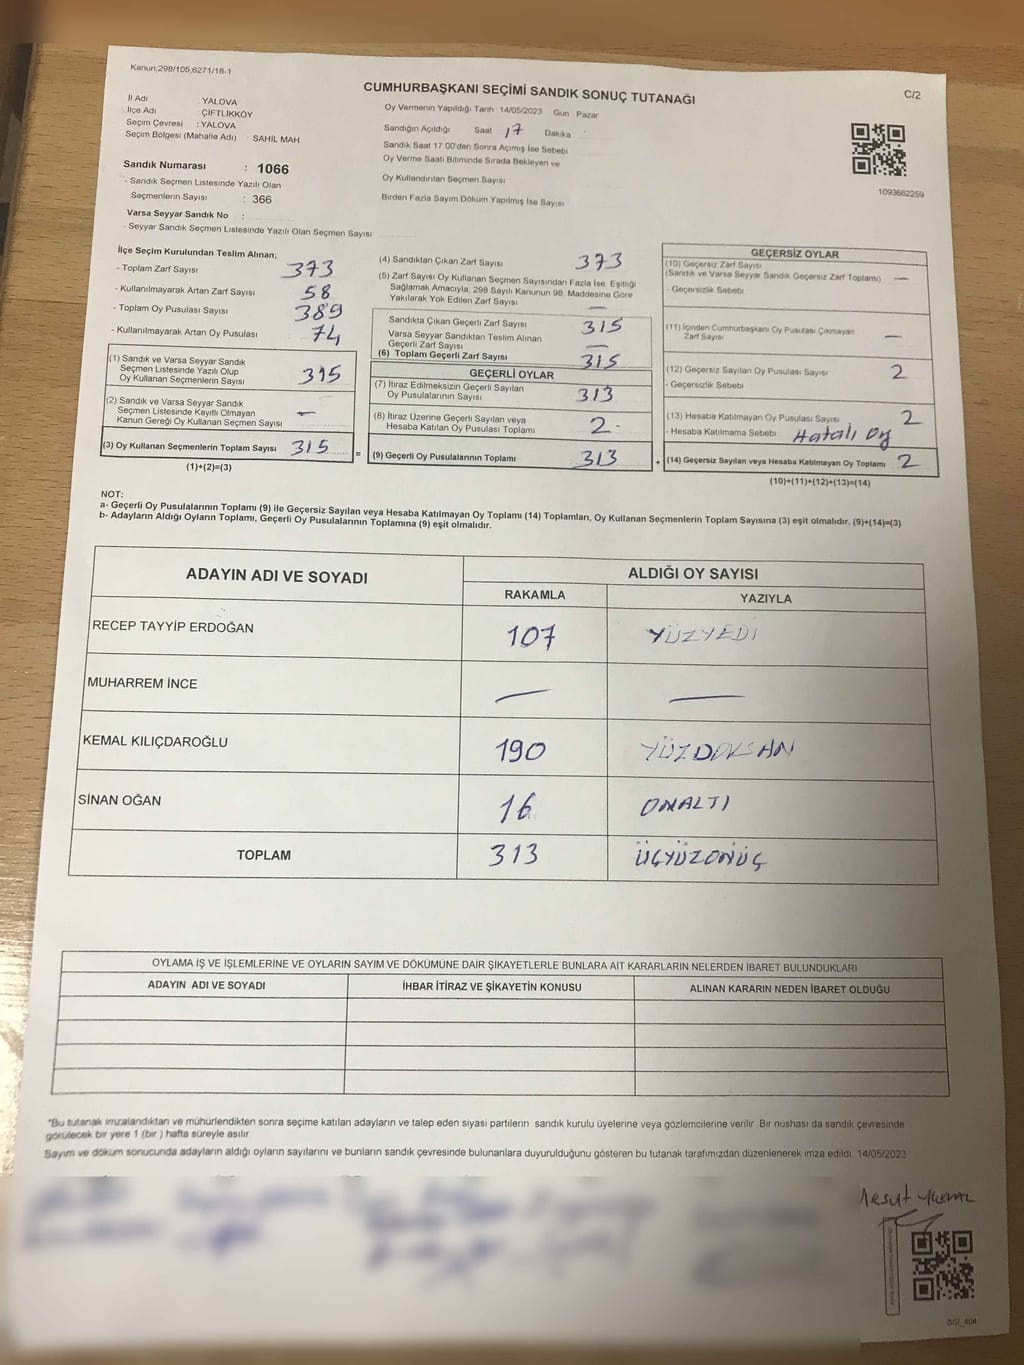 Kanun;298/105,6271/18-1
CUMHURBAŞKANI SEÇİMİ SANDIK SONUÇ TUTANAĞI
C/2
İl Adı YALOVA
İlçe Adı ÇİFTLİKKÖY
Seçim Çevresi : YALOVA
Seçim Bölgesi (Mahalle Adı) SAHİL MAH
Oy Vermenin Yapıldığı Tarih 14/05/2023 Gün Pazar
Sandığın Açıldığı Saat 17 Dakika
Sandık Saat 17.00'den Sonra Açımış İse Sebebi
Oy Verme Saati Bitiminde Sırada Bekleyen ve
Oy Kullandırılan Seçmen Sayısı
Birden Fazla Sayım Döküm Yapılmış İse Sayısı
1093662259
Sandık Numarası : 1066
- Sandık Seçmen Listesinde Yazılı Olan
Seçmenlerin Sayısı : 366
Varsa Seyyar Sandık No :
- Seyyar Sandık Seçmen Listesinde Yazılı Olan Seçmen Sayısı
İlçe Seçim Kurulundan Teslim Alınan;
- Toplam Zarf Sayısı 373
- Kullanılmayarak Artan Zarf Sayısı 58
- Toplam Oy Pusulası Sayısı 389
- Kullanılmayarak Artan Oy Pusulası 74
(1) Sandık ve Varsa Seyyar Sandık
Seçmen Listesinde Yazılı Olup
Oy Kullanan Seçmenlerin Sayısı 315
(2) Sandık ve Varsa Seyyar Sandık
Seçmen Listesinde Kayıtlı Olmayan
Kanun Gereği Oy Kullanan Seçmen Sayısı —
(3) Oy Kullanan Seçmenlerin Toplam Sayısı 315
(1)+(2)=(3)
(4) Sandıktan Çıkan Zarf Sayısı 373
(5) Zarf Sayısı Oy Kullanan Seçmen Sayısından Fazla İse, Eşitliği
Sağlamak Amacıyla, 298 Sayılı Kanunun 98. Maddesine Göre
Yakılarak Yok Edilen Zarf Sayısı —
Sandıkta Çıkan Geçerli Zarf Sayısı 315
Varsa Seyyar Sandıktan Teslim Alınan
Geçerli Zarf Sayısı —
(6) Toplam Geçerli Zarf Sayısı 315
GEÇERLİ OYLAR
(7) İtiraz Edilmeksizin Geçerli Sayılan
Oy Pusulalarının Sayısı 313
(8) İtiraz Üzerine Geçerli Sayılan veya
Hesaba Katılan Oy Pusulası Toplamı 2-
= (9) Geçerli Oy Pusulalarının Toplamı 313
GEÇERSİZ OYLAR
(10) Geçersiz Zarf Sayısı
(Sandık ve Varsa Seyyar Sandık Geçersiz Zarf Toplamı) —
- Geçersizlik Sebebi
(11) İçinden Cumhurbaşkanı Oy Pusulası Çıkmayan
Zarf Sayısı —
(12) Geçersiz Sayılan Oy Pusulası Sayısı 2
- Geçersizlik Sebebi
(13) Hesaba Katılmayan Oy Pusulası Sayısı 2
- Hesaba Katılmama Sebebi Hatalı Oy
+ (14) Geçersiz Sayılan veya Hesaba Katılmayan Oy Toplamı 2
(10)+(11)+(12)+(13)=(14)
NOT:
a- Geçerli Oy Pusulalarının Toplamı (9) ile Geçersiz Sayılan veya Hesaba Katılmayan Oy Toplamı (14) Toplamları, Oy Kullanan Seçmenlerin Toplam Sayısına (3) eşit olmalıdır. (9)+(14)=(3)
b- Adayların Aldığı Oyların Toplamı, Geçerli Oy Pusulalarının Toplamına (9) eşit olmalıdır.
ADAYIN ADI VE SOYADI ALDIĞI OY SAYISI
RAKAMLA YAZIYLA
RECEP TAYYİP ERDOĞAN 107 YÜZYEDİ
MUHARREM İNCE — —
KEMAL KILIÇDAROĞLU 190 YÜZDOKSAN
SİNAN OĞAN 16 ONALTI
TOPLAM 313 ÜÇYÜZONÜÇ
OYLAMA İŞ VE İŞLEMLERİNE VE OYLARIN SAYIM VE DÖKÜMÜNE DAİR ŞİKAYETLERLE BUNLARA AİT KARARLARIN NELERDEN İBARET BULUNDUKLARI
ADAYIN ADI VE SOYADI İHBAR İTİRAZ VE ŞİKAYETİN KONUSU ALINAN KARARIN NEDEN İBARET OLDUĞU
"Bu tutanak imzalandıktan ve mühürlendikten sonra seçime katılan adayların ve talep eden siyasi partilerin sandık kurulu üyelerine veya gözlemcilerine verilir. Bir nüshası da sandık çevresinde
görülecek bir yere 1 (bir ) hafta süreyle asılır
Sayım ve döküm sonucunda adayların aldığı oyların sayılarını ve bunların sandık çevresinde bulunanlara duyurulduğunu gösteren bu tutanak tarafımızdan düzenlenerek imza edildi. 14/05/2023